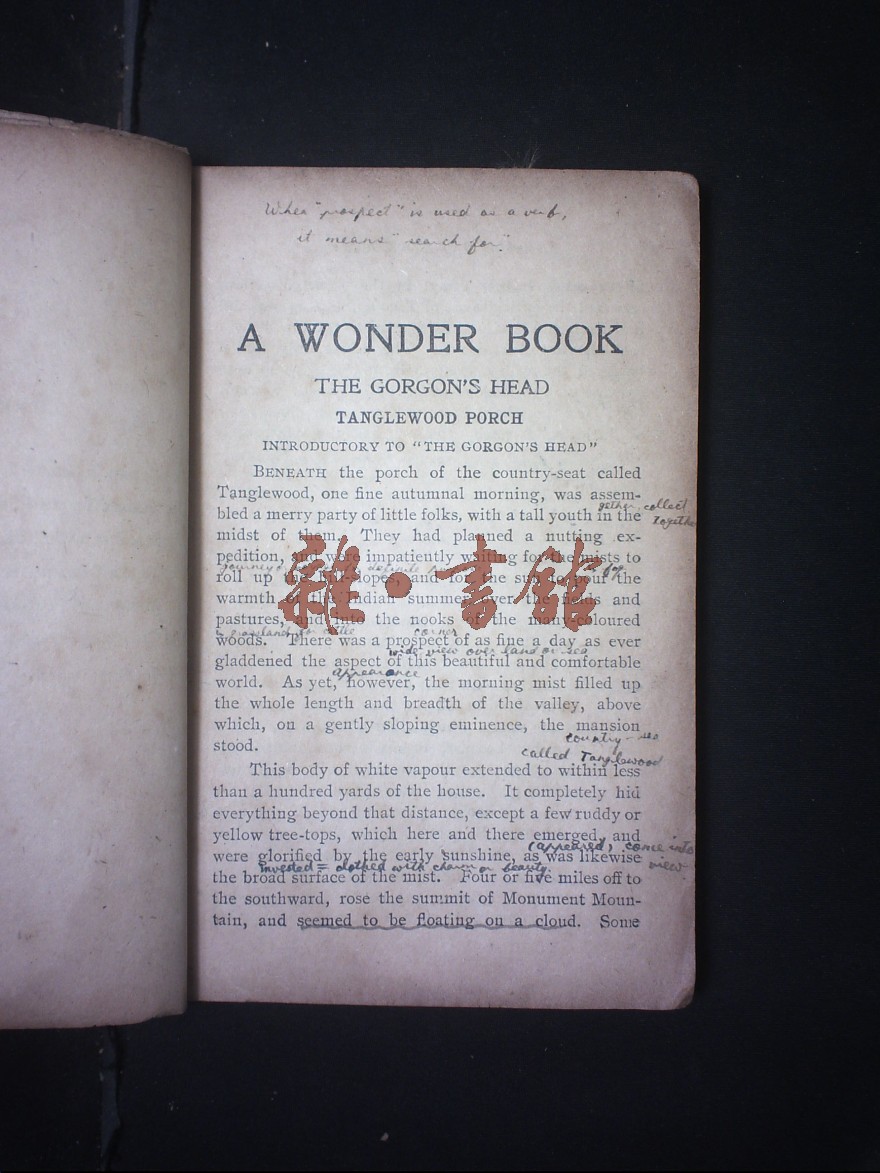 When "prospect" is used as a verb,
it means "search for".
A WONDER BOOK
THE GORGON'S HEAD
TANGLEWOOD PORCH
INTRODUCTORY TO "THE GORGON'S HEAD"
BENEATH the porch of the country-seat called
Tanglewood, one fine autumnal morning, was assem-
gather, collect
together
bled a merry party of little folks, with a tall youth in the
midst of them. They had planned a nutting ex-
pedition, and were impatiently waiting for the mists to
journey
definite
roll up the hill-slopes, and for the sun to pour the
warmth of the Indian summer over the fields and
pastures, and into the nooks of the many-coloured
grassland for cattle
corner
woods. There was a prospect of as fine a day as ever
wide view over land or sea
gladdened the aspect of this beautiful and comfortable
appearance
world. As yet, however, the morning mist filled up
the whole length and breadth of the valley, above
which, on a gently sloping eminence, the mansion
country-sea
stood.
called Tanglewood
This body of white vapour extended to within less
than a hundred yards of the house. It completely hid
everything beyond that distance, except a few ruddy or
yellow tree-tops, which here and there emerged, and
(appeared) come into
view
were glorified by the early sunshine, as was likewise
invested = clothed with charm or beauty.
the broad surface of the mist. Four or five miles off to
the southward, rose the summit of Monument Moun-
tain, and seemed to be floating on a cloud. Some
雜·書館